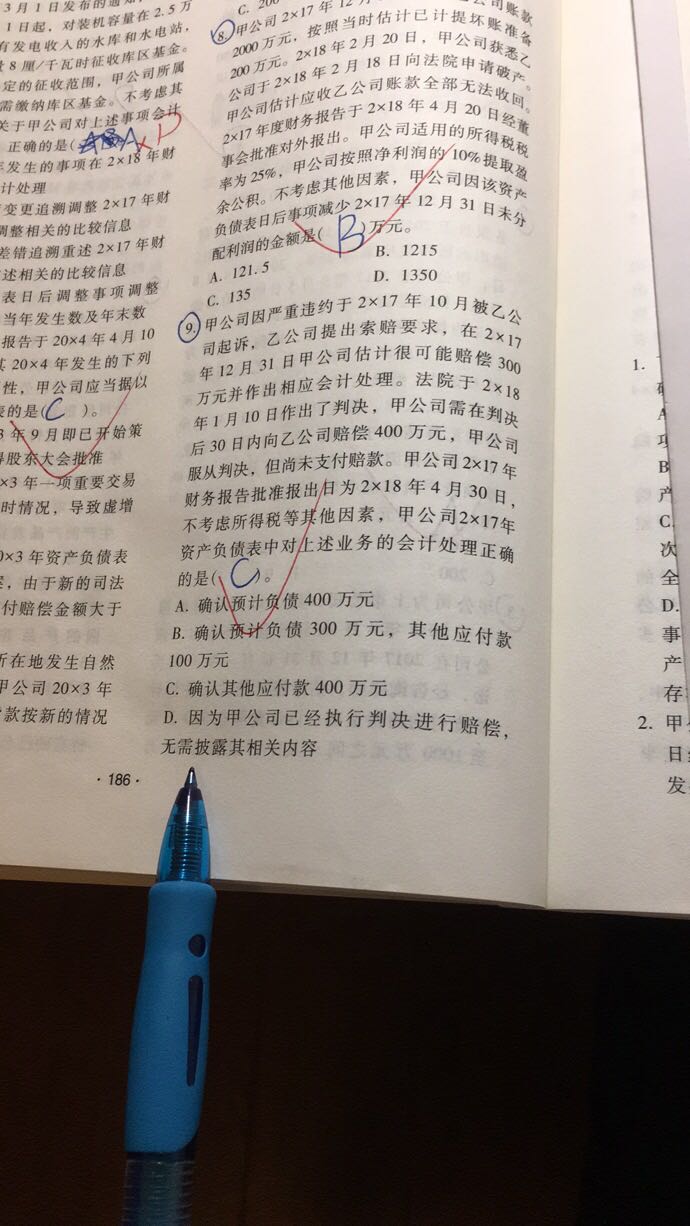 3月1日发布的通知
1日起，对装机容量在2.5万
有发电收入的水库和水电站，
8厘/千瓦时征收库区基金。
定的征收范围，甲公司所属
需缴纳库区基金。不考虑其
关于甲公司对上述事项会计
正确的是( A D
年发生的事项在2×18年财
计处理
变更追溯调整2×17年财
调整相关的比较信息
差错追溯重述2×17年财
述相关的比较信息
表日后调整事项调整
当年发生数及年末数
报告于20×4年4月10
其20×4年发生的下列
性，甲公司应当据以
表的是( C )。
3年9月即已开始策
得股东大会批准
×3年一项重要交易
时情况，导致虚增
0×3年资产负债表
，由于新的司法
付赔偿金额大于
所在地发生自然
甲公司20×3年
款按新的情况
·186·
C. 200
8. 甲公司2×17年12
公司账款
2000万元，按照当时估计已计提坏账准备
200万元。2×18年2月20日，甲公司获悉乙
公司于2×18年2月18日向法院申请破产。
甲公司估计应收乙公司账款全部无法收回。
2×17年度财务报告于2×18年4月20日经董
事会批准对外报出。甲公司适用的所得税税
率为25%，甲公司按照净利润的10%提取盈
余公积。不考虑其他因素，甲公司因该资产
负债表日后事项减少2×17年12月31日未分
配利润的金额是( B )万元。
A. 121.5 B. 1215
C. 135 D. 1350
9. 甲公司因严重违约于2×17年10月被乙公
司起诉，乙公司提出索赔要求，在2×17
年12月31日甲公司估计很可能赔偿300
万元并作出相应会计处理。法院于2×18
年1月10日作出了判决，甲公司需在判决
后30日内向乙公司赔偿400万元，甲公司
服从判决，但尚未支付赔款。甲公司2×17年
财务报告批准报出日为2×18年4月30日，
不考虑所得税等其他因素，甲公司2×17年
资产负债表中对上述业务的会计处理正确
的是( C )。
A. 确认预计负债400万元
B. 确认预计负债300万元，其他应付款
100万元
C. 确认其他应付款400万元
D. 因为甲公司已经执行判决进行赔偿，
无需披露其相关内容
1.
A
项
B
产
C.
次
全
D.
事
产
存
2. 甲
日
发